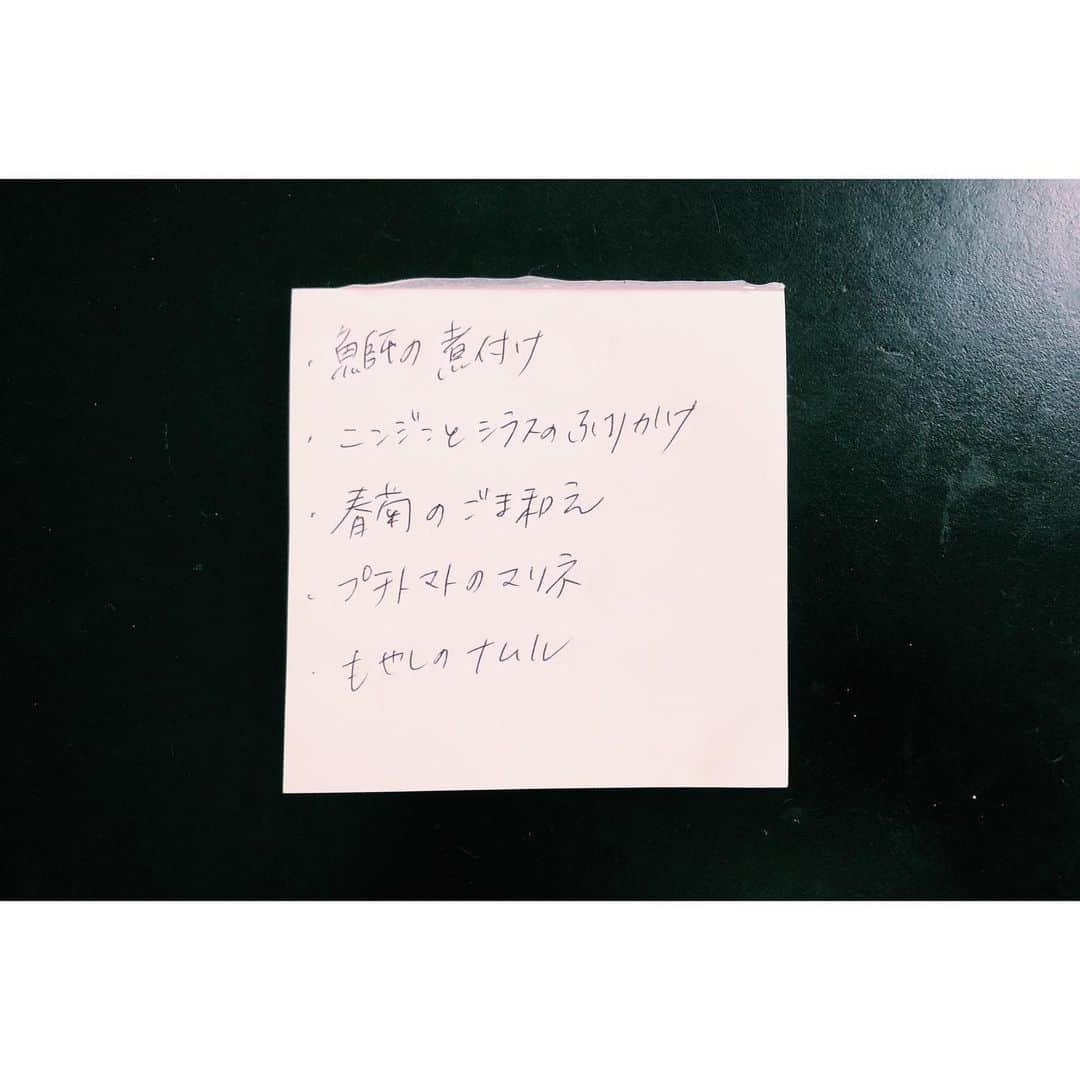 ・鰤の煮付け
・ニンジンとシラスのふりかけ
・春菊のごま和え
・プチトマトのマリネ
・もやしのナムル